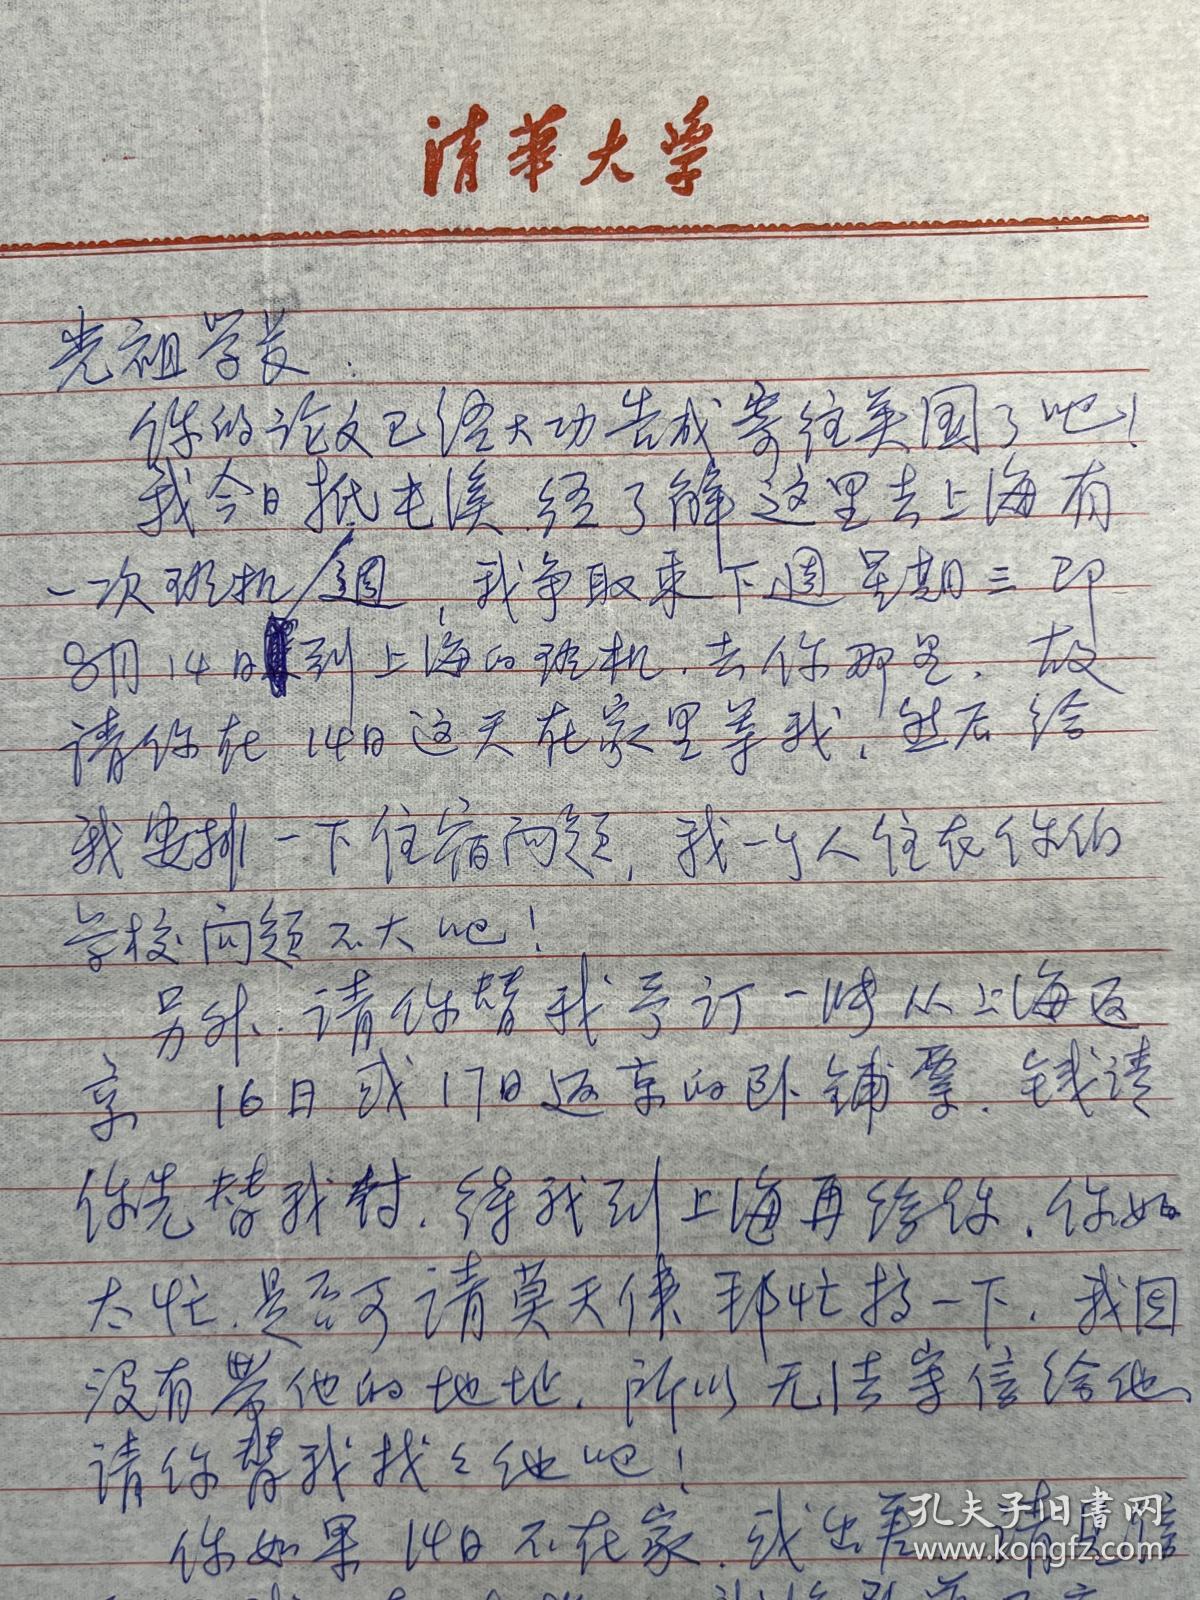 清华大学
光祖学长:
你的论文已经大功告成寄往美国了吧!
我今日抵屯溪.经了解这里去上海有
一次班机/每週,我争取乘下週星期三即
8月14日到上海的班机.去你那里.故
请你在14日这天在家里等我,然后给
我安排一下住宿问题,我一个人住在你的
学校问题不大吧!
另外.请你替我予订一张从上海返
京 16日或17日返京的卧铺票.钱请
你先替我付.待我到上海再给你.你如
太忙.是否可请莫天伟帮忙搞一下.我因
没有带他的地址.所以无法寄信给他、
请你替我找々他吧!
你如果14日不在家.或出差 请见信
孔夫子旧书网
www.kongfz.com